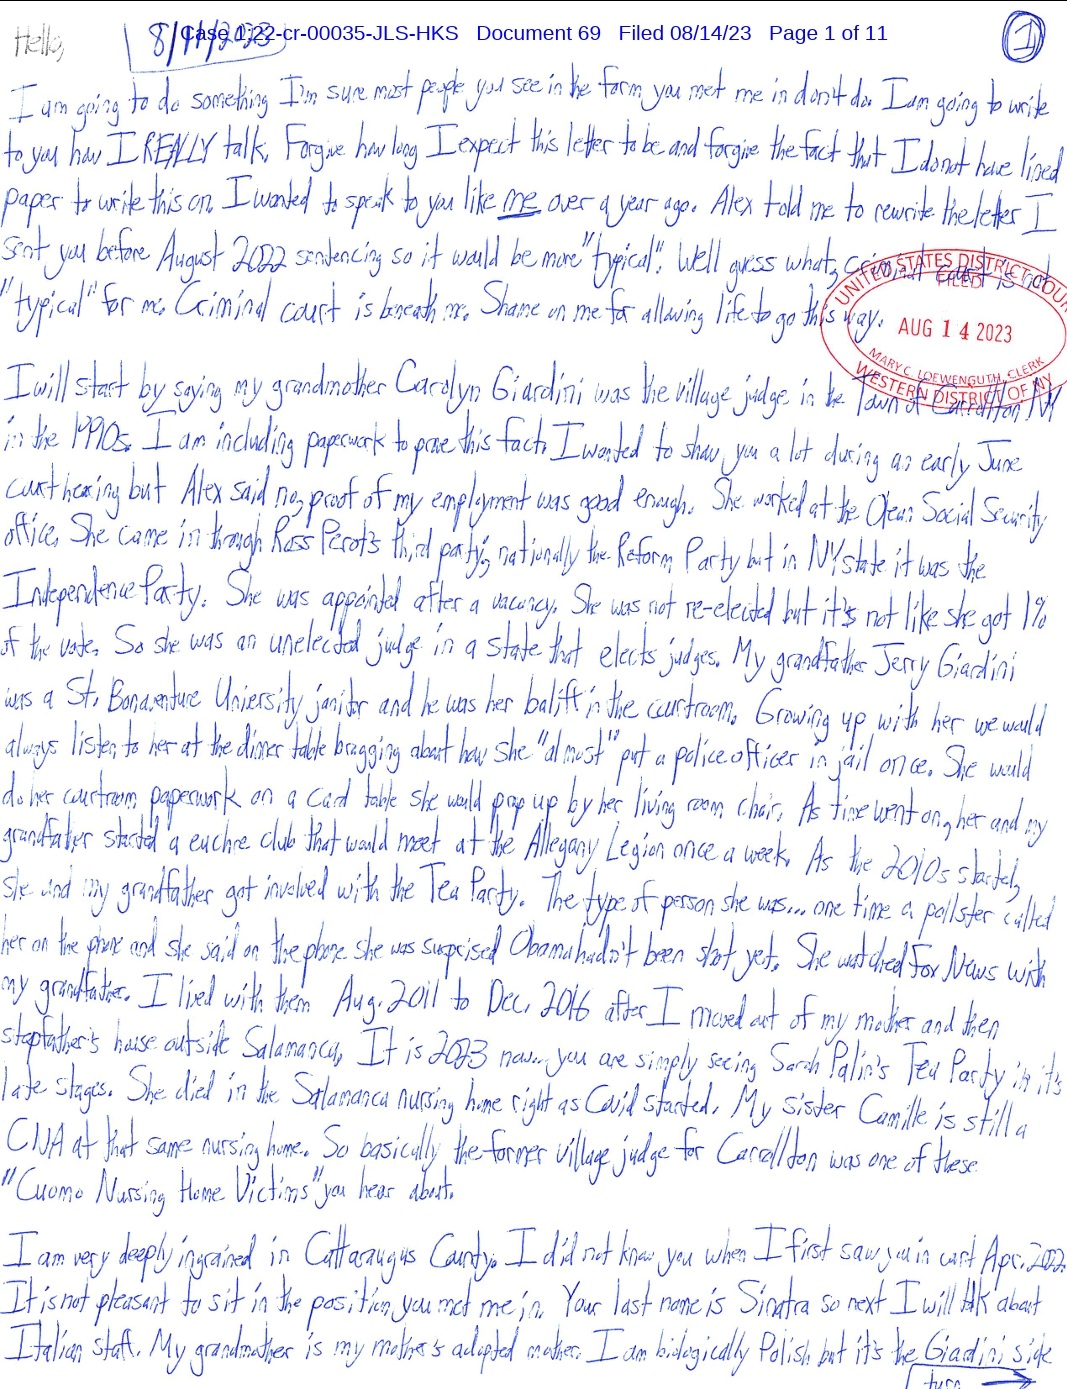 Case 1:22-cr-00035-JLS-HKS Document 69 Filed 08/14/23 Page 1 of 11
Hello,
8/11/2023
1
I am going to do something I'm sure most people you see in the form you met me in don't do. I am going to write
to you how I REALLY talk. Forgive how long I expect this letter to be and forgive the fact that I do not have lined
paper to write this on. I wanted to speak to you like me over a year ago. Alex told me to rewrite the letter I
sent you before August 2022 sentencing so it would be more "typical". Well guess what, criminal court is not
"typical" for me. Criminal court is beneath me. Shame on me for allowing life to go this way.
UNITED STATES DISTRICT COURT
FILED
AUG 14 2023
MARY C. LOEWENGUTH, CLERK
WESTERN DISTRICT OF NY
I will start by saying my grandmother Carolyn Giardini was the village judge in the Town of Carrollton, NY
in the 1990s. I am including paperwork to prove this fact. I wanted to show you a lot during an early June
court hearing but Alex said no, proof of my employment was good enough. She worked at the Olean Social Security
office. She came in through Ross Perot's third party; nationally the Reform Party but in NY state it was the
Independence Party. She was appointed after a vacancy. She was not re-elected but it's not like she got 1%
of the vote. So she was an unelected judge in a state that elects judges. My grandfather Jerry Giardini
was a St. Bonaventure University janitor and he was her baliff in the courtroom. Growing up with her we would
always listen to her at the dinner table bragging about how she "almost" put a police officer in jail once. She would
do her courtroom paperwork on a card table she would prop up by her living room chair. As time went on, her and my
grandfather started a euchre club that would meet at the Allegany Legion once a week. As the 2010s started,
she and my grandfather got involved with the Tea Party. The type of person she was... one time a pollster called
her on the phone and she said on the phone she was surprised Obama hadn't been shot yet. She watched Fox News with
my grandfather. I lived with them Aug. 2011 to Dec. 2016 after I moved out of my mother and then
stepfather's house outside Salamanca. It is 2023 now... you are simply seeing Sarah Palin's Tea Party in it's
late stages. She died in the Salamanca nursing home right as Covid started. My sister Camille is still a
CNA at that same nursing home. So basically the former village judge for Carrollton was one of these
"Cuomo Nursing Home Victims" you hear about.
I am very deeply ingrained in Cattaraugus County. I did not know you when I first saw you in court Apr. 2022.
It is not pleasant to sit in the position you met me in. Your last name is Sinatra so next I will talk about
Italian stuff. My grandmother is my mother's adopted mother. I am biologically Polish but it's the Giardini side
turn →